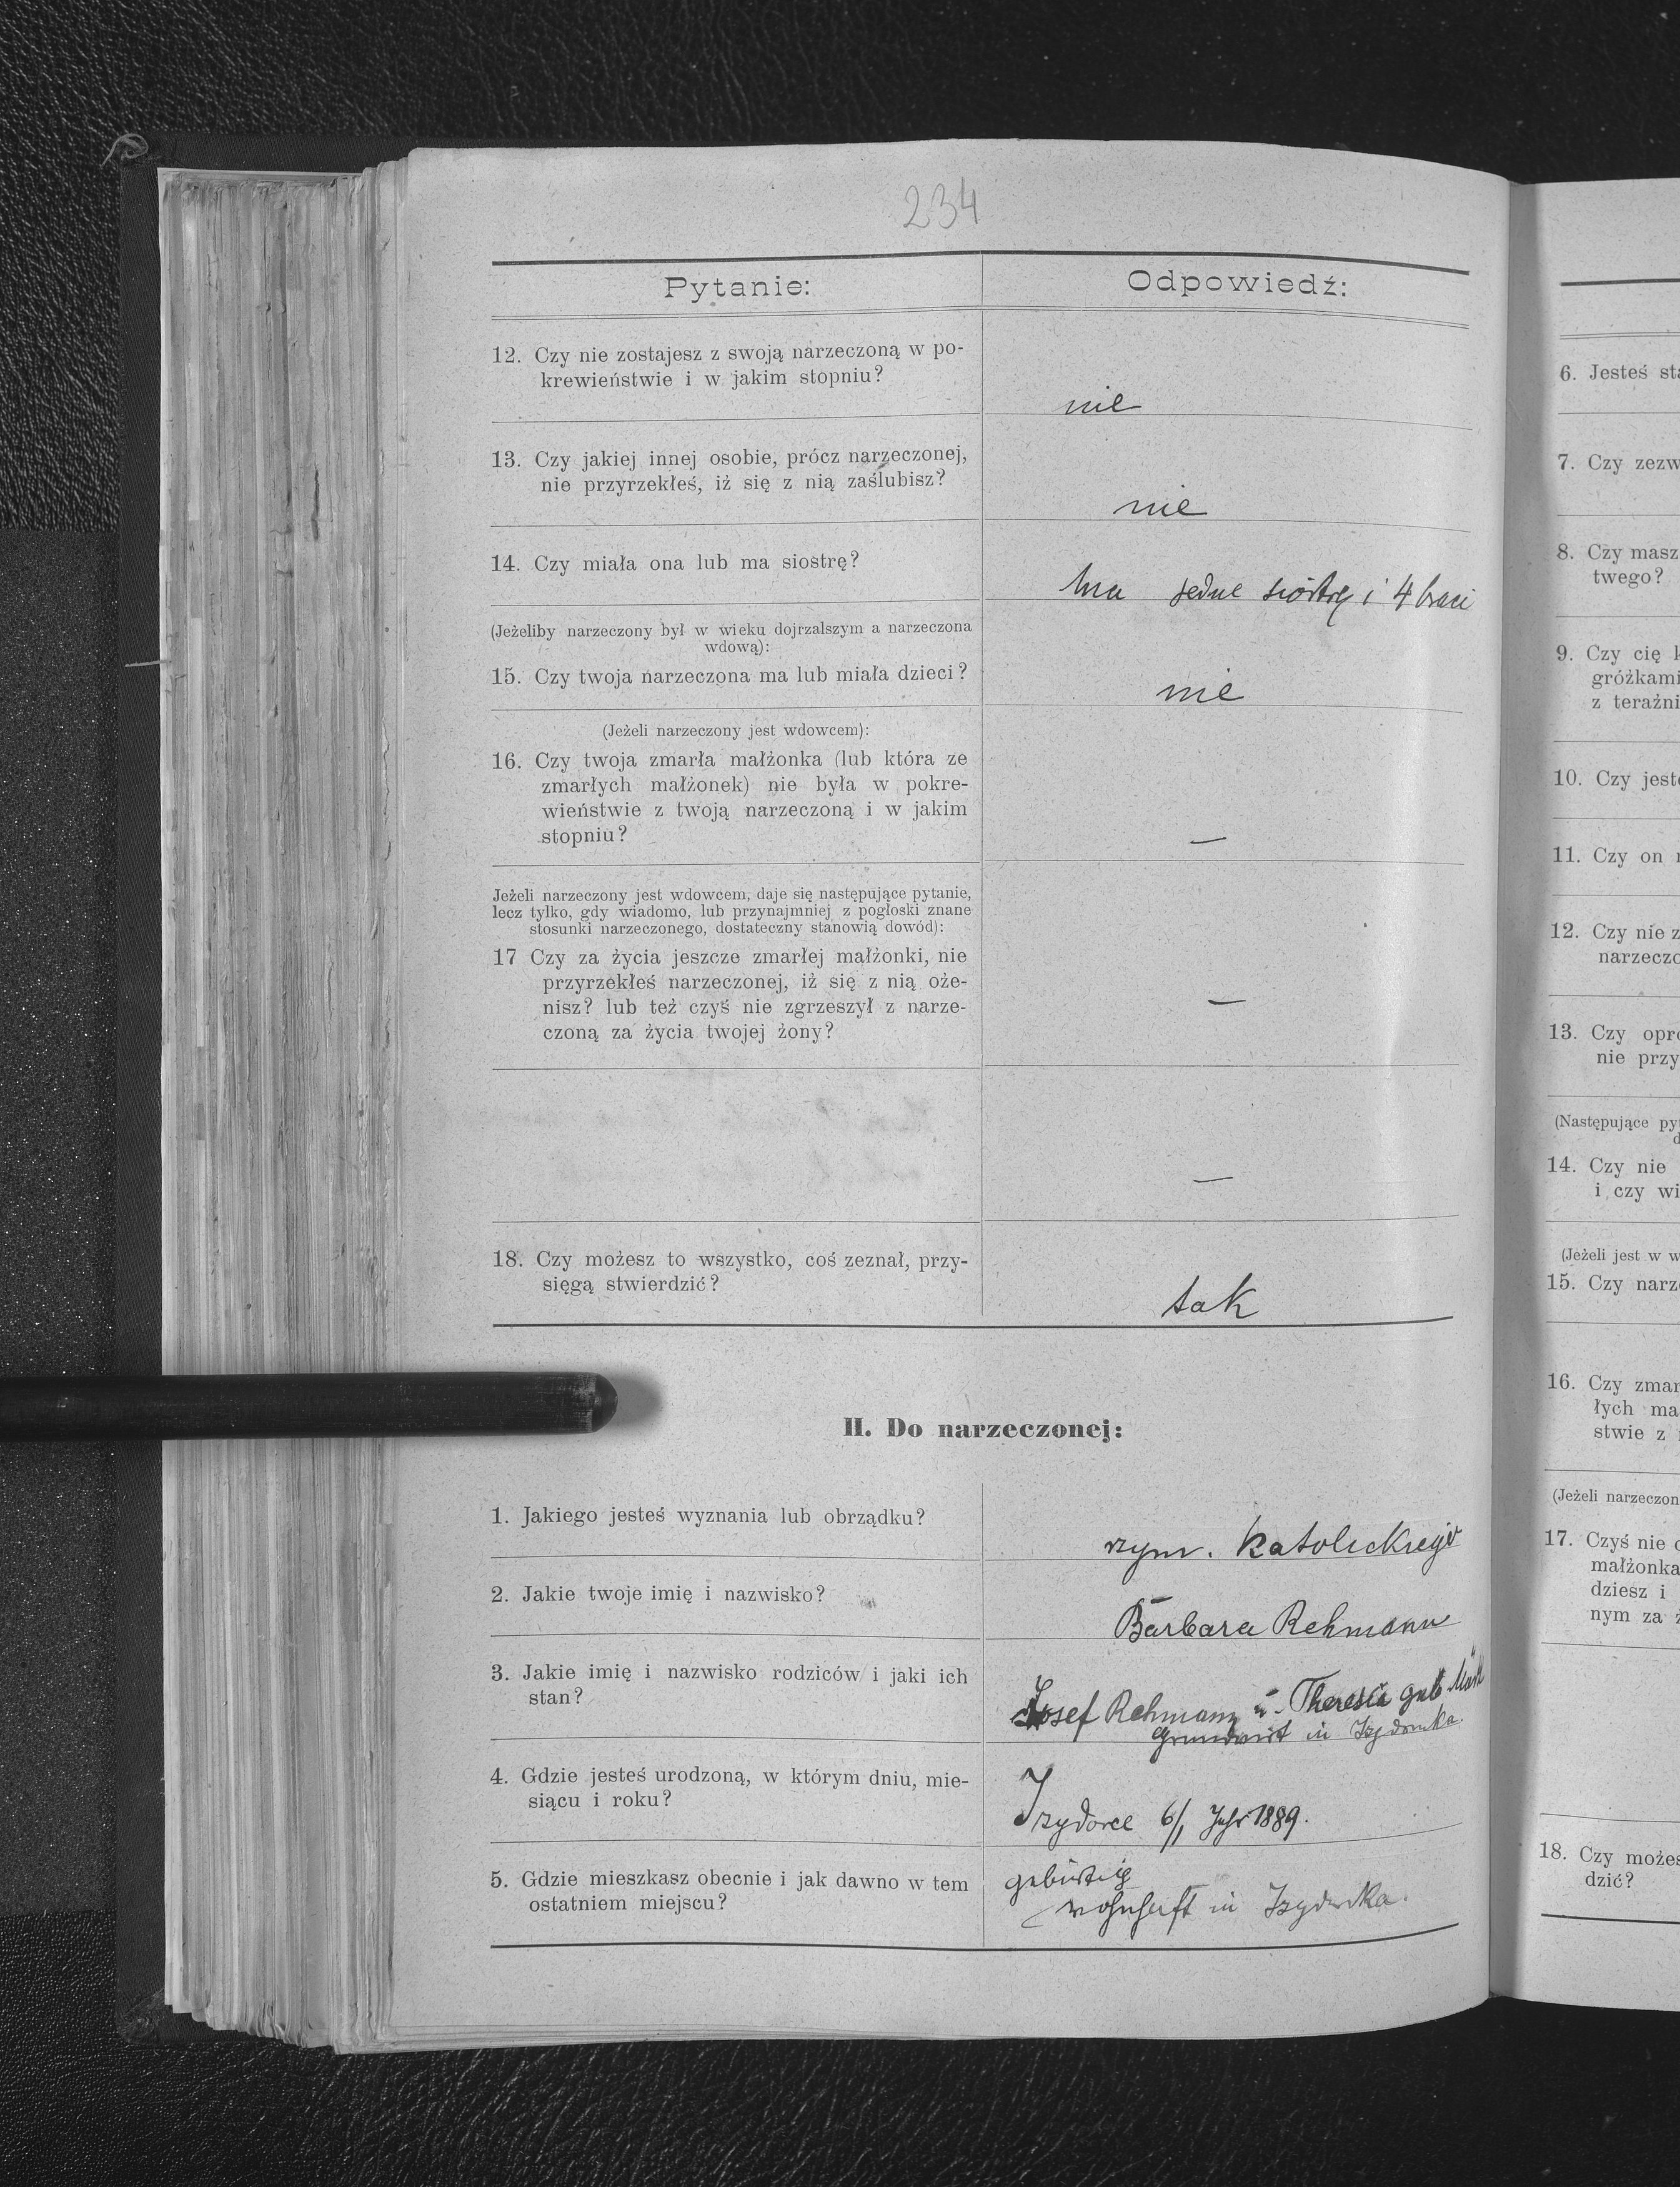 234
Pytanie:
Odpowiedź:
12. Czy nie zostajesz z swoją narzeczoną w po-
krewieństwie i w jakim stopniu?
nie
13. Czy jakiej innej osobie, prócz narzeczonej,
nie przyrzekłeś, iż się z nią zaślubisz?
nie
14. Czy miała ona lub ma siostrę?
ma jedne siostrę i 4 braci
(Jeżeliby narzeczony był w wieku dojrzalszym a narzeczona
wdową):
15. Czy twoja narzeczona ma lub miała dzieci?
nie
(Jeżeli narzeczony jest wdowcem):
16. Czy twoja zmarła małżonka (lub która ze
zmarłych małżonek) nie była w pokre-
wieństwie z twoją narzeczoną i w jakim
stopniu?
—
Jeżeli narzeczony jest wdowcem, daje się następujące pytanie,
lecz tylko, gdy wiadomo, lub przynajmniej z pogłoski znane
stosunki narzeczonego, dostateczny stanowią dowód):
17 Czy za życia jeszcze zmarłej małżonki, nie
przyrzekłeś narzeczonej, iż się z nią oże-
nisz? lub też czyś nie zgrzeszył z narze-
czoną za życia twojej żony?
—
—
18. Czy możesz to wszystko, coś zeznał, przy-
sięgą stwierdzić?
tak
II. Do narzeczonej:
1. Jakiego jesteś wyznania lub obrządku?
rzym. katolickiego
2. Jakie twoje imię i nazwisko?
Barbara Rehmann
3. Jakie imię i nazwisko rodziców i jaki ich
stan?
Josef Rehmann u. Theresia geb
Grundwirt in Izydorówka.
4. Gdzie jesteś urodzoną, w którym dniu, mie-
siącu i roku?
Izydorce 6/1 Jahr 1889.
5. Gdzie mieszkasz obecnie i jak dawno w tem
ostatniem miejscu?
gebürtig
wohnhaft in
6. Jesteś sta
7. Czy zezw
8. Czy masz
twego?
9. Czy cię k
gróżkami
z teraźni
10. Czy jeste
11. Czy on
12. Czy nie z
narzeczo
13. Czy opró
nie przy
(Następujące py
d
14. Czy nie
i czy wi
(Jeżeli jest w w
15. Czy narz
16. Czy zmar
łych ma
stwie z
(Jeżeli narzeczon
17. Czyś nie
małżonka
dziesz i
nym za ż
18. Czy może
dzić?